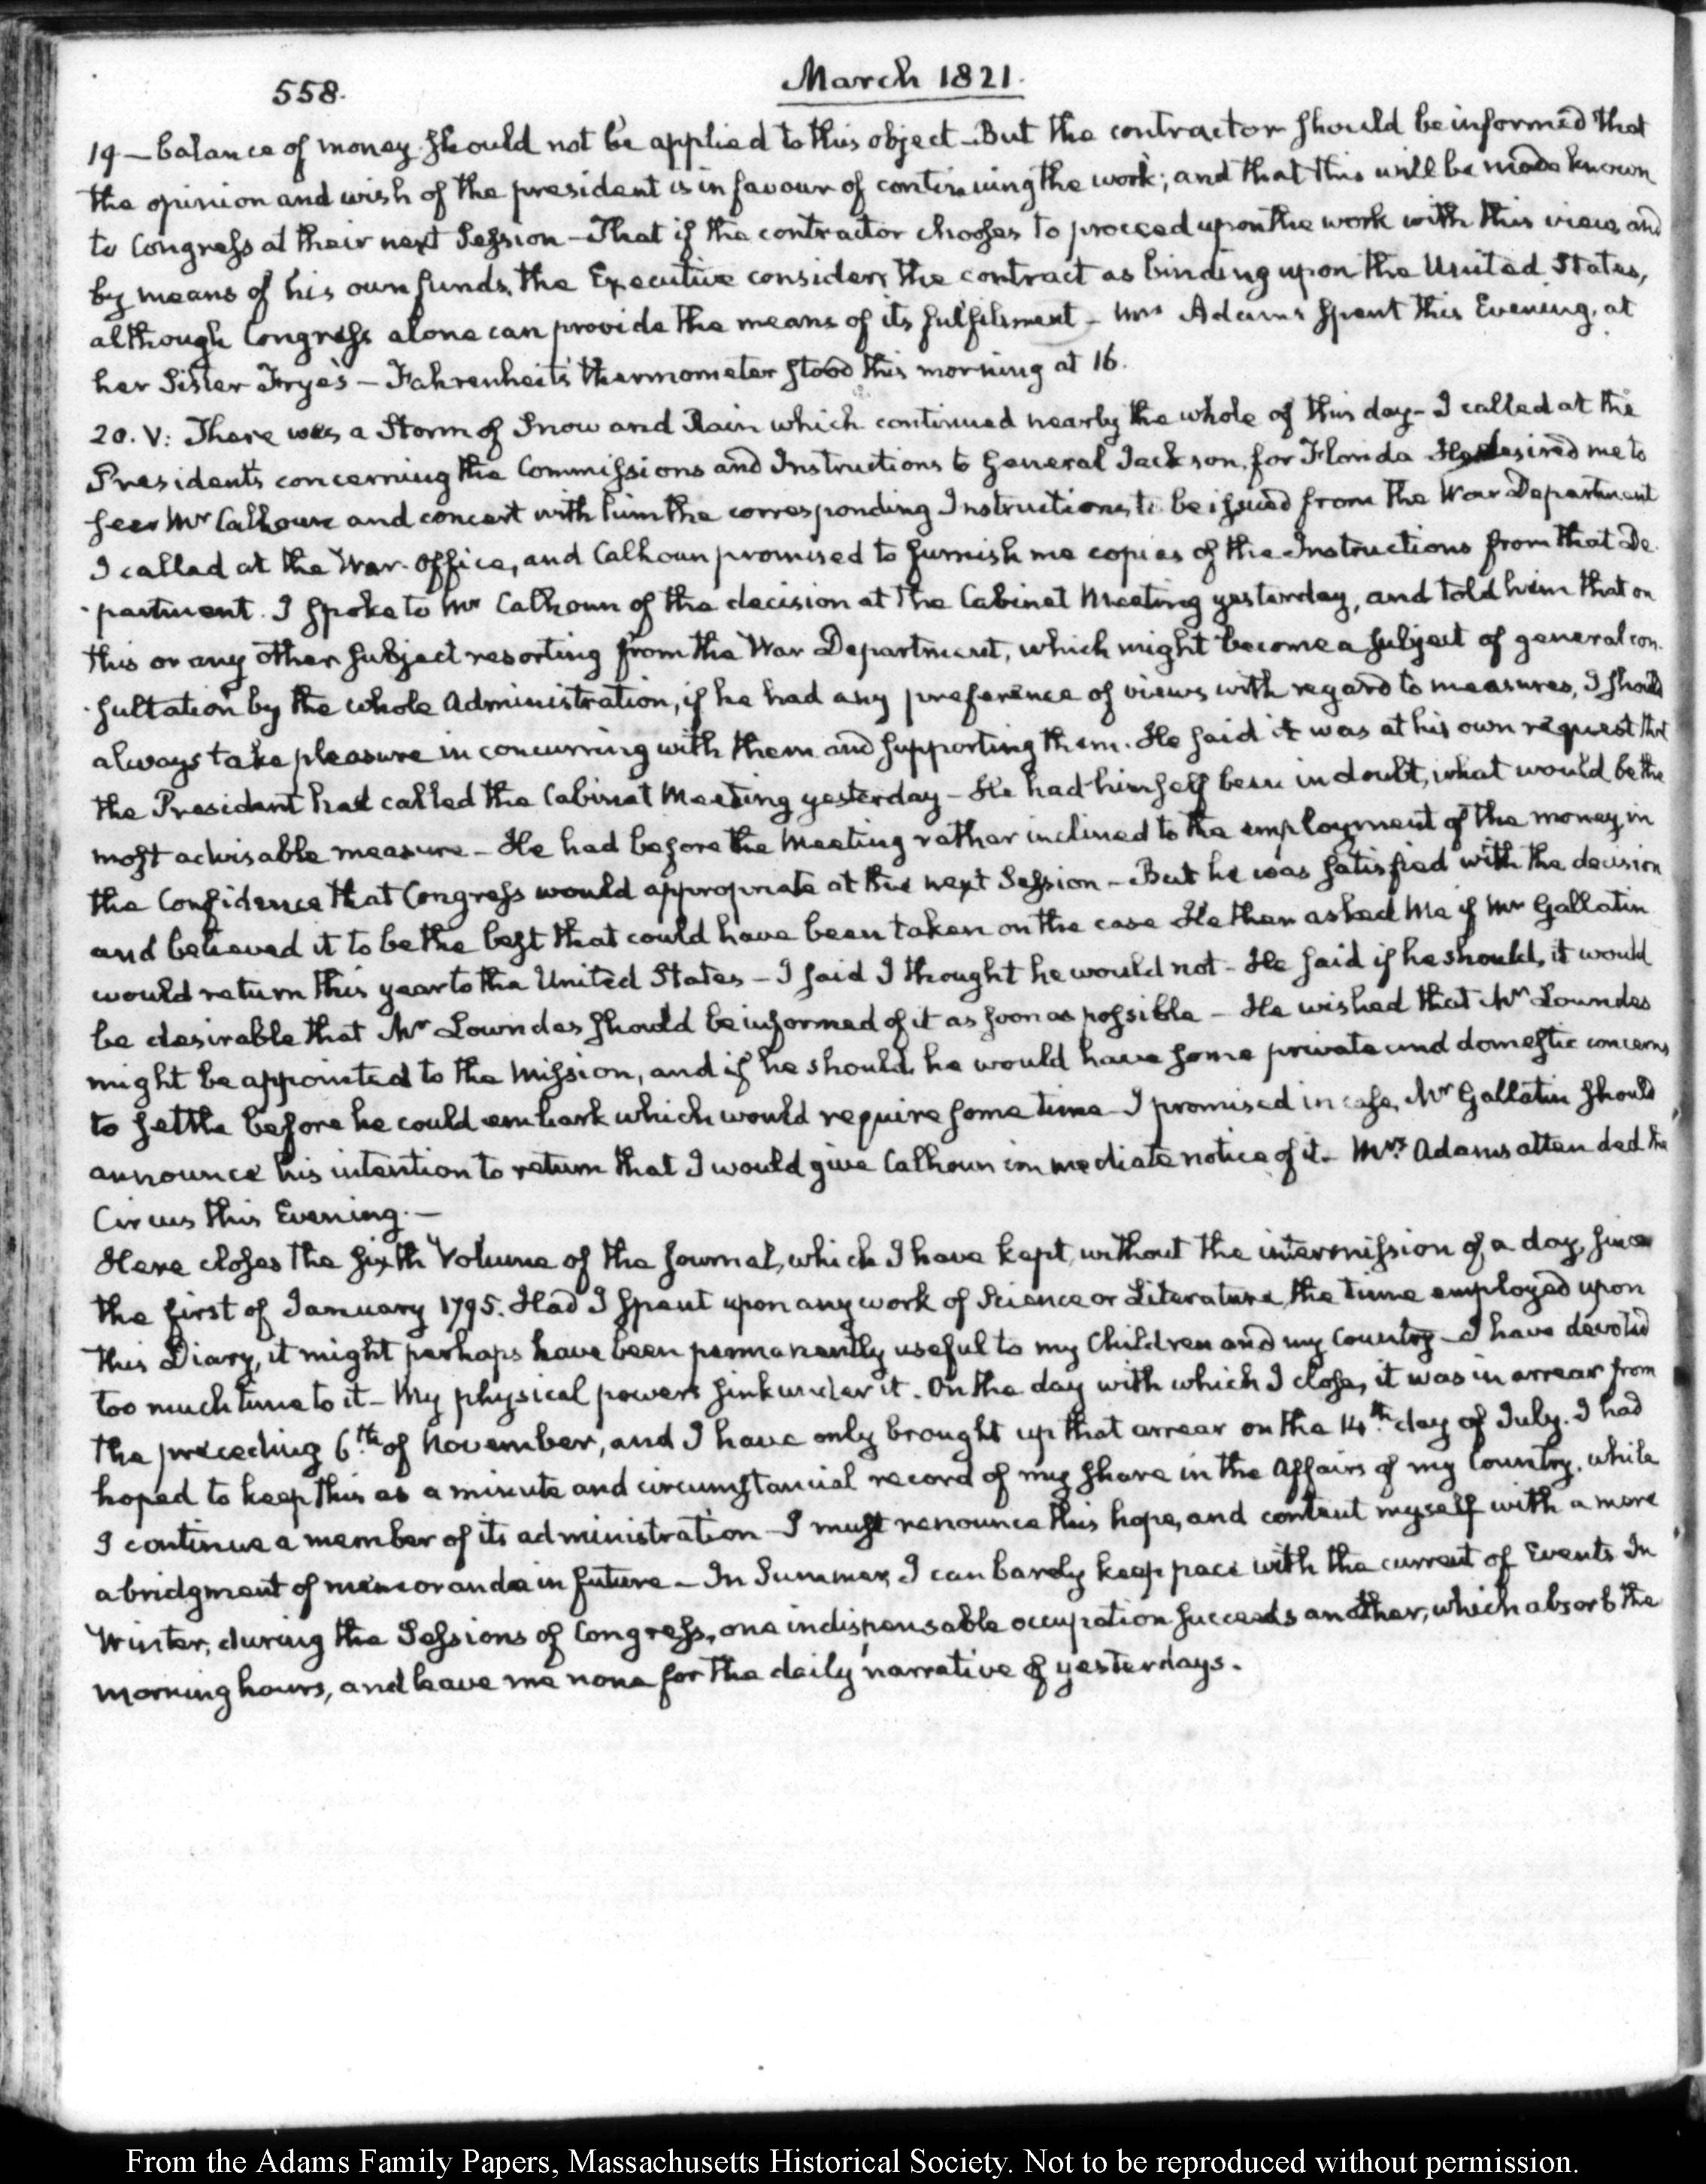 558.
March 1821.
19 — balance of money should not be applied to this object — But the contractor should be informed that
the opinion and wish of the president is in favour of continuing the work; and that this will be made known
to Congress at their next Session — That if the contractor chooses to proceed upon the work with this view, and
by means of his own funds, the Executive considers the contract as binding upon the United States,
although Congress alone can provide the means of its fulfilment — Mrs Adams spent this Evening, at
her Sister Frye's — Fahrenheit's thermometer stood this morning at 16.
20. V: There was a Storm of Snow and Rain which continued nearly the whole of this day — I called at the
President's concerning the Commissions and Instructions to General Jackson, for Florida He desired me to
see Mr Calhoun and concert with him the corresponding Instructions, to be issued from the War Department
I called at the War-Office, and Calhoun promised to furnish me copies of the Instructions from that De-
-partment. I spoke to Mr Calhoun of the decision at the Cabinet Meeting yesterday, and told him that on
this or any other subject resorting from the War Department, which might become a subject of general con-
-sultation by the whole Administration, if he had any preference of views with regard to measures, I should
always take pleasure in concurring with them and supporting them. He said it was at his own request that
the President had called the Cabinet Meeting yesterday — He had himself been in doubt, what would be the
most advisable measure — He had before the Meeting rather inclined to the employment of the money in
the Confidence that Congress would appropriate at the next Session — But he was satisfied with the decision
and believed it to be the best that could have been taken on the case He then asked me if Mr Gallatin
would return this year to the United States — I said I thought he would not — He said if he should, it would
be desirable that Mr Lowndes should be informed of it as soon as possible — He wished that Mr Lowndes
might be appointed to the Mission, and if he should, he would have some private and domestic concerns,
to settle before he could embark which would require some time — I promised in case, Mr Gallatin should
announce his intention to return that I would give Calhoun immediate notice of it — Mrs Adams attended the
Circus this Evening. —
Here closes the sixth Volume of the Journal, which I have kept, without the intermission of a day, since
the first of January 1795. Had I spent upon any work of Science or Literature, the time employed upon
this Diary, it might perhaps have been permanently useful to my Children and my Country — I have devoted
too much time to it — My physical powers sink under it. On the day with which I close, it was in arrear from
the preceding 6th of November, and I have only brought up that arrear on the 14th day of July. I had
hoped to keep this as a minute and circumstancial record of my share in the Affairs of my Country, while
I continue a member of its administration — I must renounce this hope, and content myself with a mere
abridgment of memoranda in future — In Summer, I can barely keep pace with the current of Events In
Winter, during the Sessions of Congress, one indispensable occupation succeeds another, which absorb the
morning hours, and leave me none for the daily narrative of yesterdays.
From the Adams Family Papers, Massachusetts Historical Society. Not to be reproduced without permission.